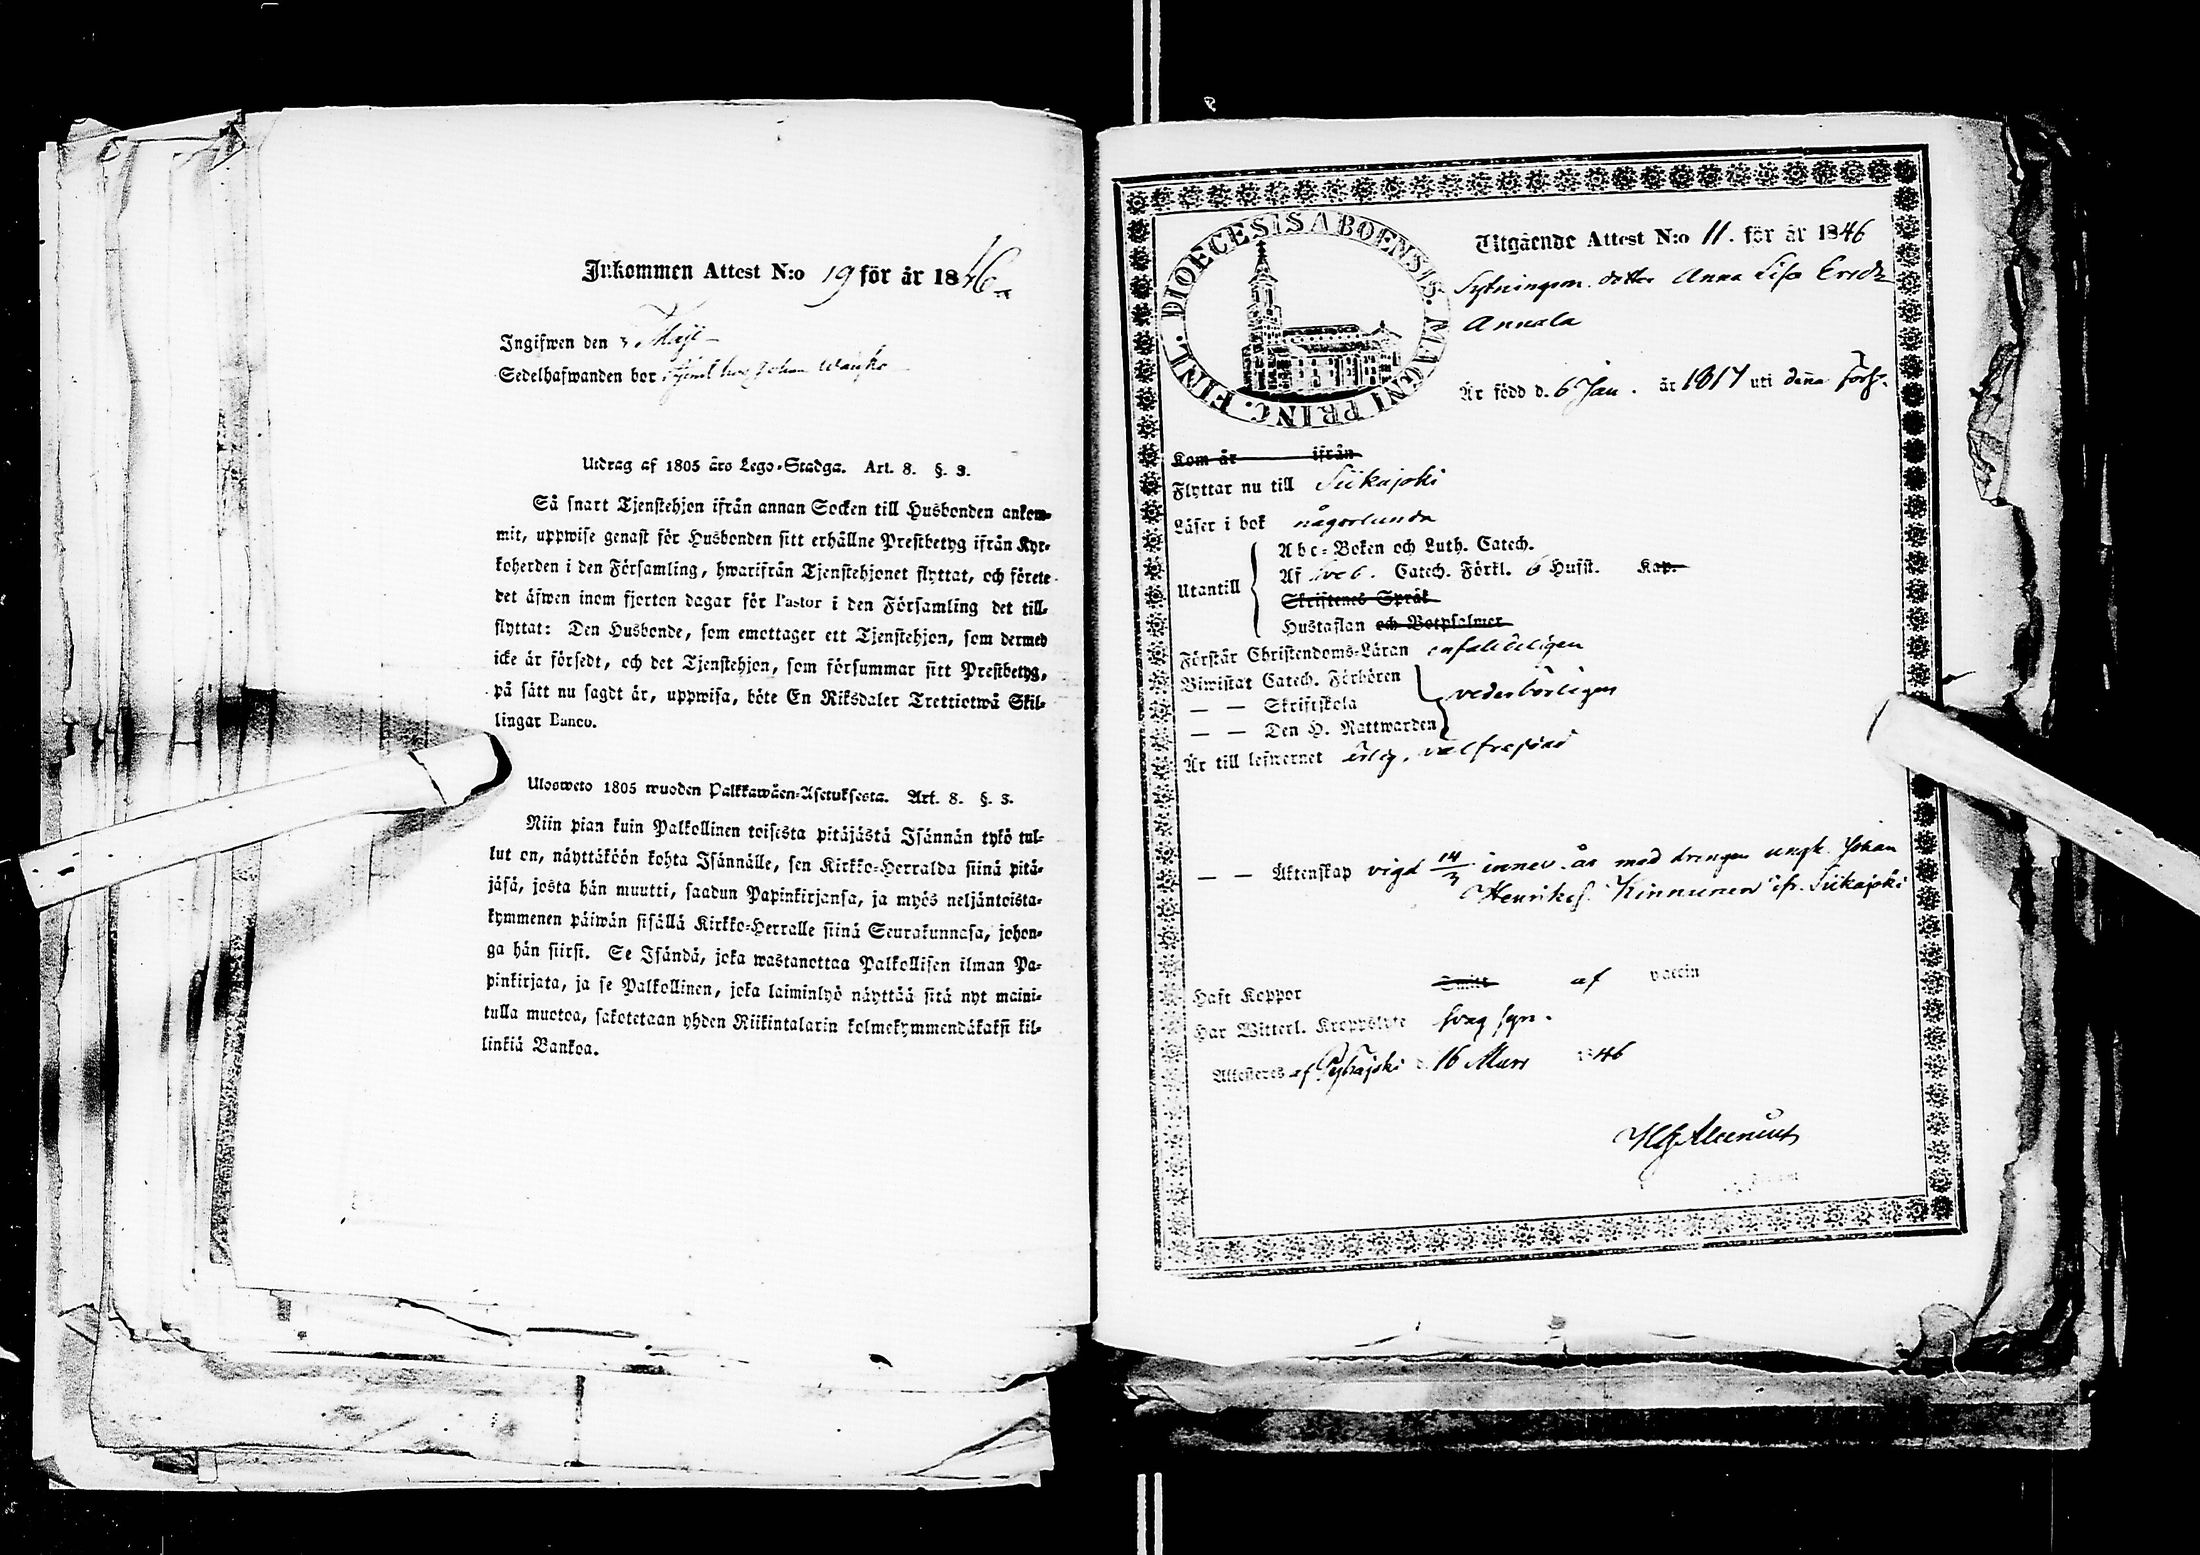 Inkommen Attest N:o 19 för år 1846
Ingifwen den 3 Maji
Sedelhafwanden bor hos Johan
Utdrag af 1805 års Lego-Stadga. Art. 8. §. 3.
Så snart Tjenstehjon ifrån annan Socken till Husbonden ankom-
mit, uppwise genast för Husbonden sitt erhållne Prestbetyg ifrån Kyr-
koherden i den Församling, hwarifrån Tjenstehjonet flyttat, och förete
det äfwen inom fjorton dagar för Pastor i den Församling det till-
flyttat: Den Husbonde, som emottager ett Tjenstehjon, som dermed
icke är försedt, och det Tjenstehjon, som försummar sitt Prestbetyg,
på sätt nu sagdt är, uppwisa, böte En Riksdaler Trettiotwå Skil-
lingar Banco.
Ulosweto 1805 wuoden Palkkawäen-Asetuksesta. Art. 8. §. 3.
Niin pian kuin Palkollinen toisesta pitäjästä Isännän tykö tul-
lut on, näyttäköön kohta Isännälle, sen Kirkko-Herralda siinä pitä-
jäsä, josta hän muutti, saadun Papinkirjansa, ja myös neljäntoista-
kymmenen päiwän sisällä Kirkko-Herralle siinä Seurakunnasa, johon-
ga hän siirsi. Se Isändä, joka wastanottaa Palkollisen ilman Pa-
pinkirjata, ja se Palkollinen, joka laiminlyö näyttää sitä nyt maini-
tulla muotoa, sakotetaan yhden Riikintalarin kolmekymmendäkaksi kil-
linkiä Bankoa.
DIOECESIS ABOENSIS. MAGNI PRINC. FINL.
Utgående Attest N:o 11. för år 1846
Sytningsm. dotter Anna Lisa Ersdr
Annala
Är född d. 6 Jan. år 1817 uti denna förs.
Kom år ifrån
Flyttar nu till Siikajoki
Läser i bok någorlunda
Utantill
Abc-Boken och Luth. Catech.
Af Sveb. Catech. Förkl. 6 Hufst. Kap.
Skriftenes Språk
Hustaflan och Botpsalmer
Förstår Christendoms-Läran enfaldeligen
Biwistat Catech. Förhören
— — Skriftskola vederbörligen
— — Den H. Nattwarden
Är till lefwernet ärlig, välfrejdad
— — Äktenskap vigd 14/3 innev. år med drengen ungk. Johan
Henrikss. Kinnunen ifr. Siikajoki
Haft Koppor Smitt af vaccin
Har Witterl. Kroppslyte svag syn.
Attesteras af Pyhäjoki d. 16 Mars 1846